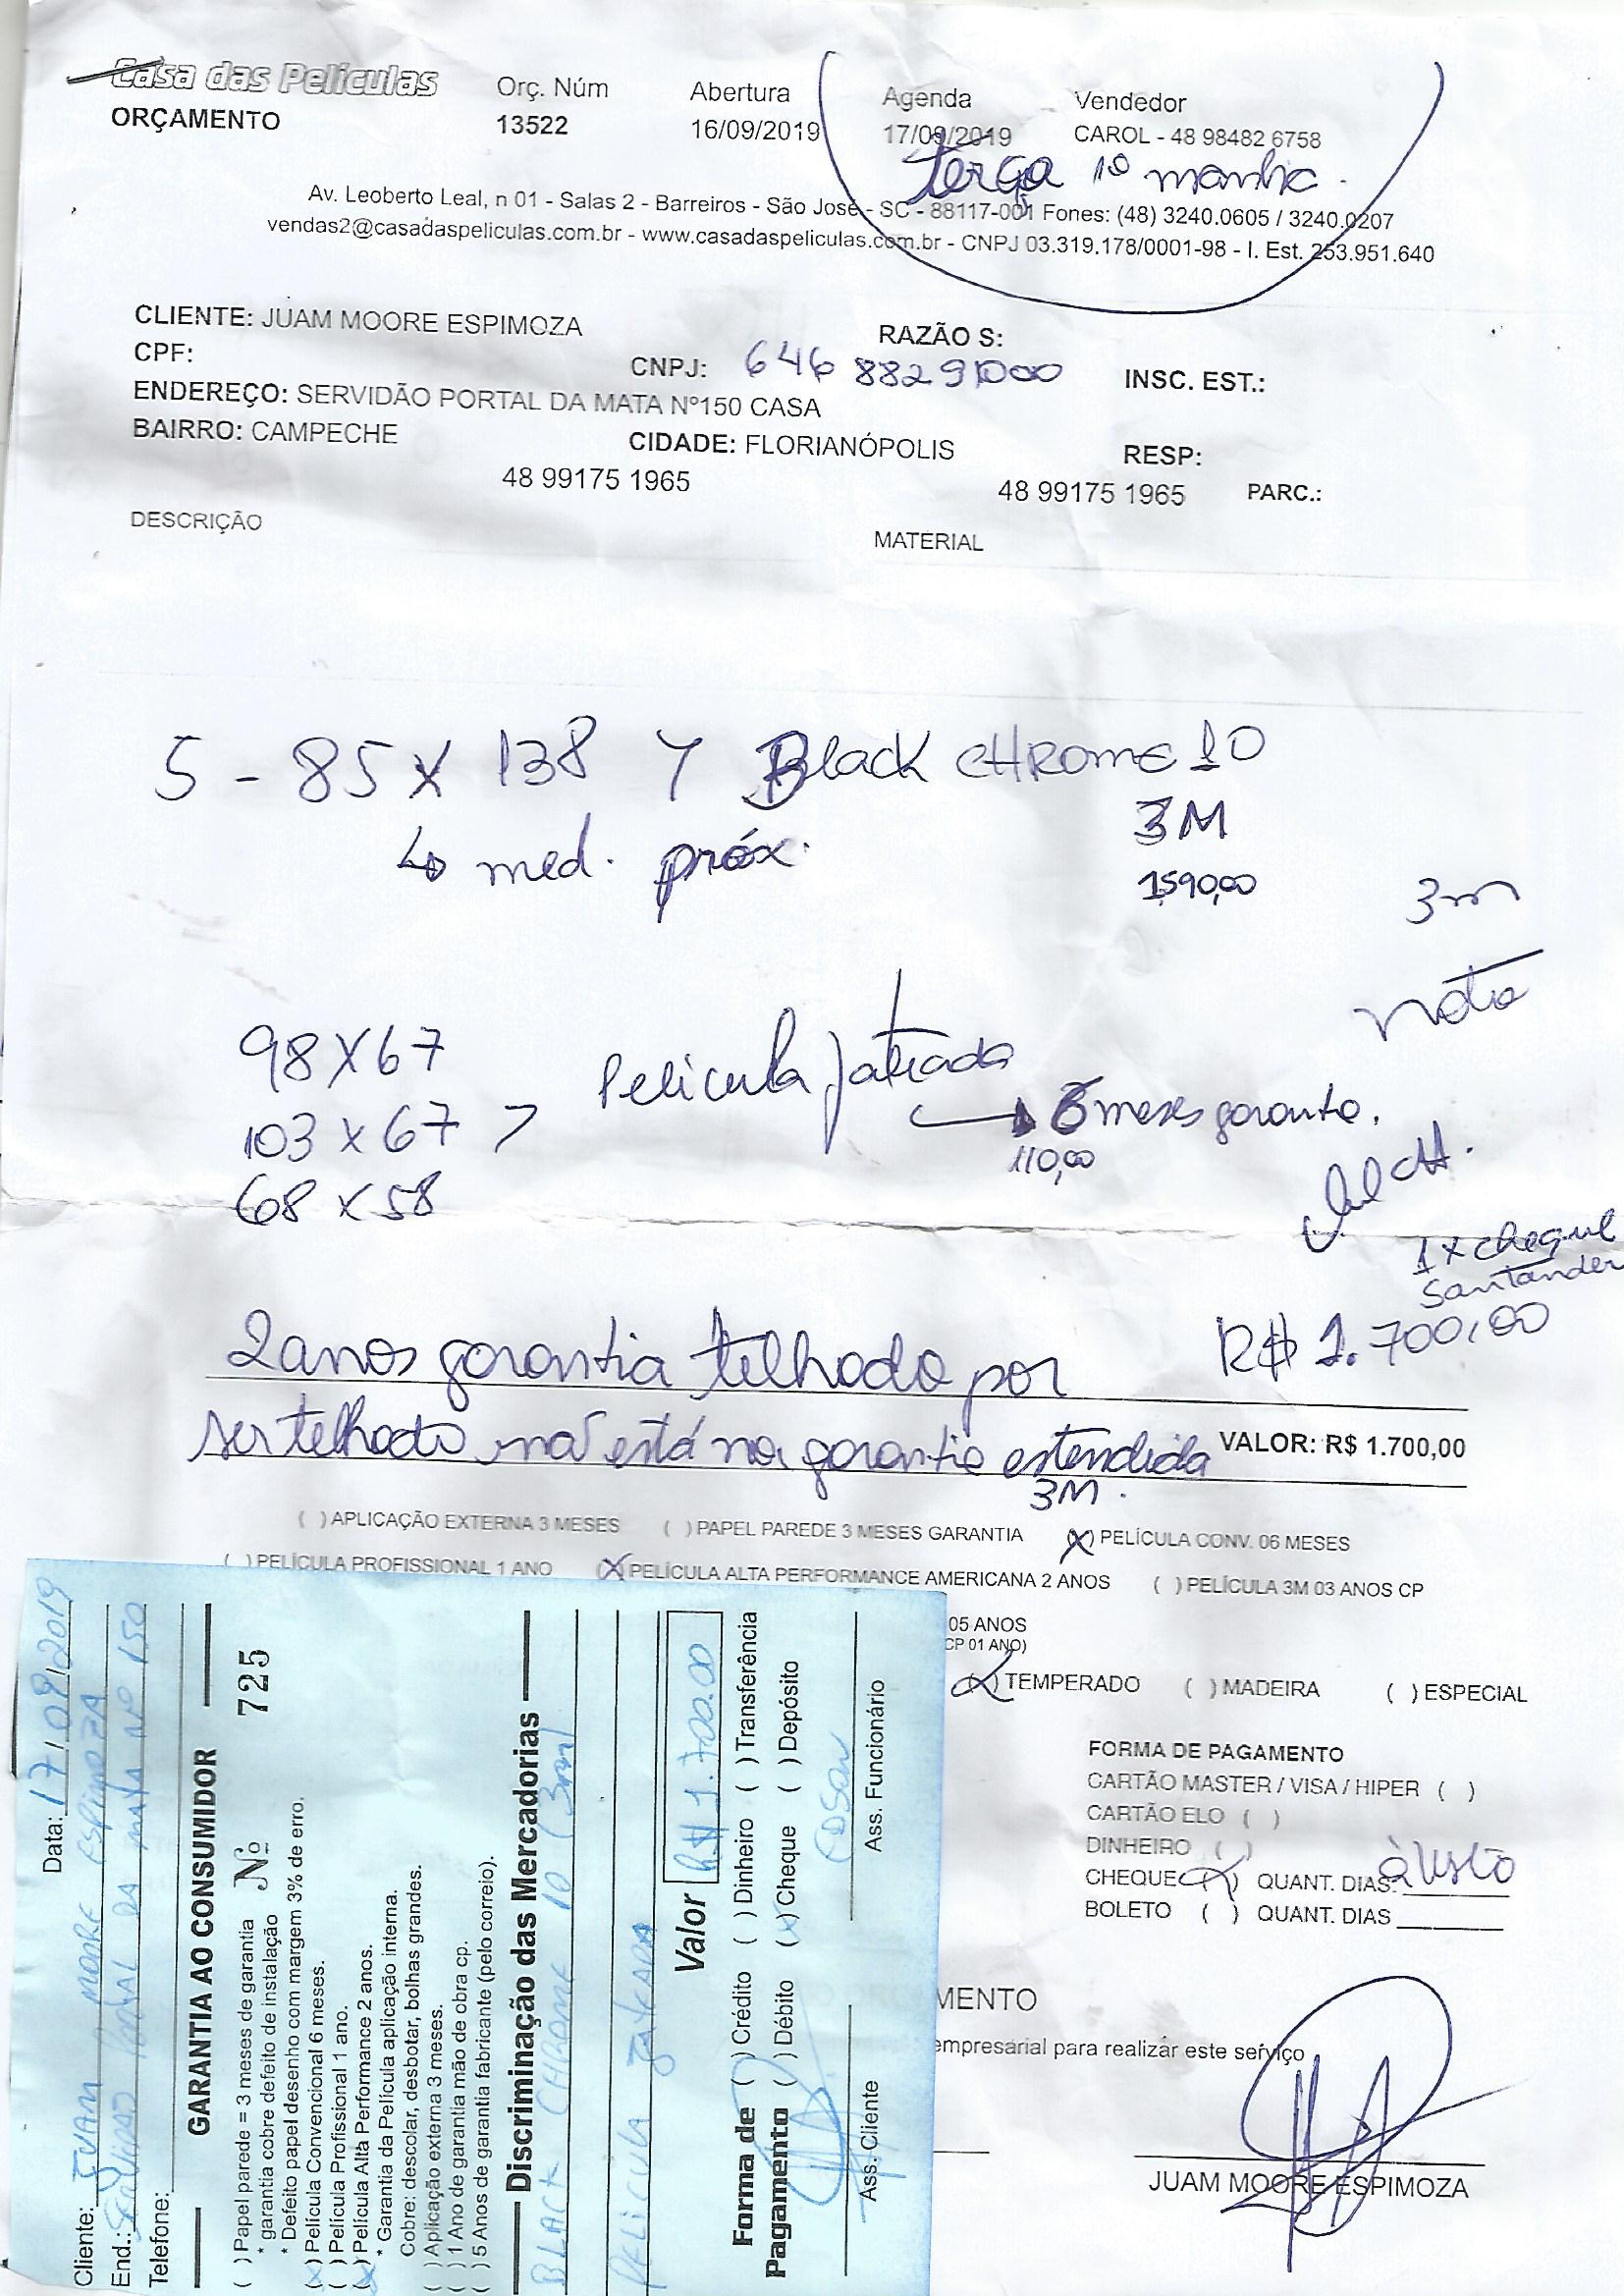 Casa das Películas
ORÇAMENTO
Orç. Núm
13522
Abertura
16/09/2019
Agenda
17/09/2019
Vendedor
CAROL - 48 98482 6758
terça 1º manhã.
Av. Leoberto Leal, n 01 - Salas 2 - Barreiros - São José - SC - 88117-001 Fones: (48) 3240.0605 / 3240.0207
vendas2@casadaspeliculas.com.br - www.casadaspeliculas.com.br - CNPJ 03.319.178/0001-98 - I. Est. 253.951.640
CLIENTE: JUAM MOORE ESPIMOZA
RAZÃO S:
CPF:
CNPJ: 646 88291000
INSC. EST.:
ENDEREÇO: SERVIDÃO PORTAL DA MATA Nº150 CASA
BAIRRO: CAMPECHE
CIDADE: FLORIANÓPOLIS
RESP:
48 99175 1965
48 99175 1965
PARC.:
DESCRIÇÃO
MATERIAL
5 - 85 x 138 Black CHROME 10
med. próx.
3M
1590,00
3m
nota
98 X 67
103 x 67 > Película Jateada
68 x 58
6 meses garantia.
110,00
1 x cheque
Santander
R$ 1.700,00
2 anos garantia telhado por
ser telhado não está na garantia estendida
3M.
VALOR: R$ 1.700,00
( ) APLICAÇÃO EXTERNA 3 MESES ( ) PAPEL PAREDE 3 MESES GARANTIA (X) PELÍCULA CONV. 06 MESES
( ) PELÍCULA PROFISSIONAL 1 ANO (X) PELÍCULA ALTA PERFORMANCE AMERICANA 2 ANOS ( ) PELÍCULA 3M 03 ANOS CP
05 ANOS
CP 01 ANO)
(X) TEMPERADO ( ) MADEIRA ( ) ESPECIAL
FORMA DE PAGAMENTO
CARTÃO MASTER / VISA / HIPER ( )
CARTÃO ELO ( )
DINHEIRO ( )
CHEQUE (X) QUANT. DIAS: à Visto
BOLETO ( ) QUANT. DIAS
MENTO
empresarial para realizar este serviço
JUAM MOORE ESPIMOZA
Data: 17/09/2019
Cliente: JUAM MOORE ESPIMOZA
End.: Servidão Portal da mata Nº 150
Telefone:
GARANTIA AO CONSUMIDOR
( ) Papel parede = 3 meses de garantia
Nº 725
* garantia cobre defeito de instalação
* Defeito papel desenho com margem 3% de erro.
(x) Película Convencional 6 meses.
( ) Película Profissional 1 ano.
(x) Película Alta Performance 2 anos.
* Garantia da Película aplicação interna.
Cobre: descolar, desbotar, bolhas grandes.
( ) Aplicação externa 3 meses.
( ) 1 Ano de garantia mão de obra cp.
( ) 5 Anos de garantia fabricante (pelo correio).
Discriminação das Mercadorias
BLACK CHROME 10 (3M)
PELICULA JATEADA
Valor R$ 1.700.00
Forma de Pagamento
( ) Crédito ( ) Dinheiro ( ) Transferência
( ) Débito (x) Cheque ( ) Depósito
EDSON
Ass. Cliente
Ass. Funcionário